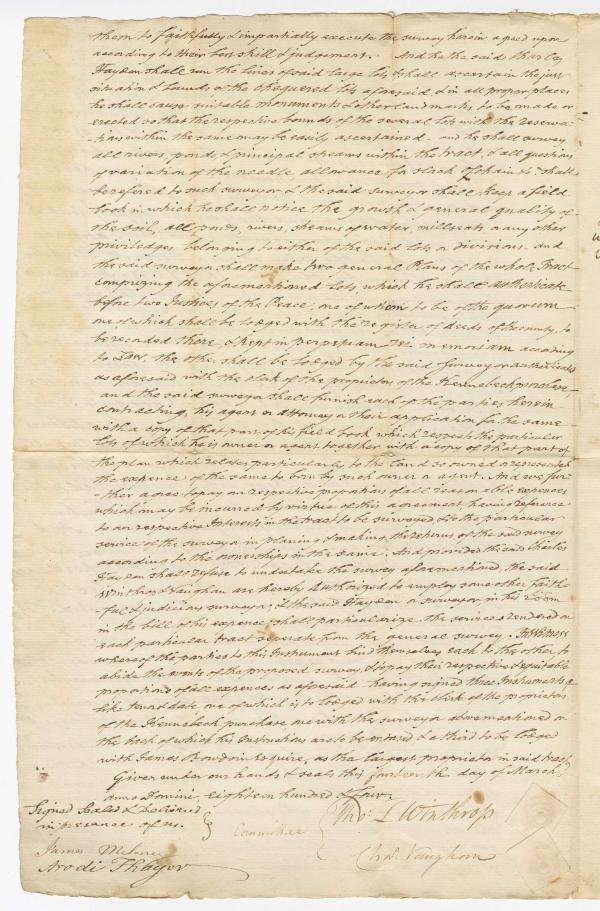 them to faithfully & impartially execute the survey herein agreed upon
according to their best skill & judgement. And he the said Charles
Hayden shall run the lines of said large lots & shall ascertain the just
situation & bounds of the chequered lots aforesaid, & in all proper places
he shall cause suitable monuments & other land marks to be made or
erected so that the respective bounds of the several lots with the reserva-
tions within the same may be easily ascertained - and he shall survey
all rivers, ponds & principal streams within the tract, & all questions
of variation of the needle, allowance for slack of chain &c shall
be refered to such surveyor & the said surveyor shall keep a field
book in which he shall notice the growth & general quality of
the soil, all ponds, rivers, streams of water, millseats or any other
priviledges belonging to either of the said lots or divisions. and
the said surveyor shall make two general Plans of the whole Tract
comprizing the aforementioned lots which he shall authenticate
before two Justices of the Peace, one of whom to be of the quorum
one of which shall be lodged with the register of deeds of the county, to
be recorded there, & kept in perpetuam rei memoriam according
to Law, the other shall be lodged by the said Surveyor authenticated
as aforesaid with the clerk of the proprietors of the Kennebeck purchase,
and the said surveyor shall furnish each of the parties herein
contracting, his agent or attorney on their application for the same
with a copy of that part of his field book which respects the particular
lots of which he is owner or agent together with a copy of that part of
the plan which relates particularly to the land so owned or represented
the expence of the same to be born by such owner or agent. And we fur-
-ther agree to pay our respective proportions of all reasonable expences
which may be incurred by virtue of this agreement, having reference
to our respective Interests in the tract to be surveyed & to the particular
service of the surveyor in planing & making the returns of the said survey
according to the ownerships in the same. And provided the said Charles
Hayden shall refuse to undertake the survey aforementioned, the said
Winthrop & Vaughan are hereby authorized to employ some other faith-
ful & judicious surveyor, & the said Hayden or surveyor in his room
in the bill of his expence shall particularize the services rendered on
each particular tract seperate from the general survey. In Witness
whereof the parties to this Instrument bind themselves each to the other, to
abide the events of the proposed survey, & to pay their respective & equitable
proportions of all expences as aforesaid having signed three Instruments of
like tenor & date one of which is to lodged with the clerk of the proprietors
of the Kennebeck purchase one with the surveyor abovementioned on
the back of which his Instructions are to be entered & a third to be lodged
with James Bowdoin Esquire, as the largest proprietor in said tract
Given under our hands & seals this fourteenth day of March
anno Domini, eighteen hundred & four.
Signed Sealed & Delivered
in presence of us.
Committee
Tho: L Winthrop
James
Arodi Thayer
Chas. Vaughan